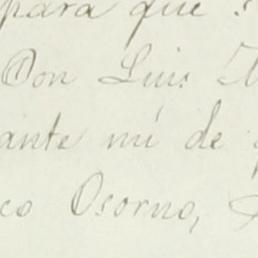 para que
Don Luis
ante mi de
co Osorno,